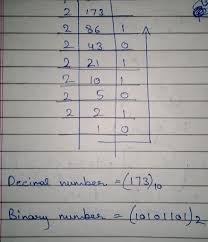 2 173
2 86 1
2 43 0
2 21 1
2 10 1
2 5 0
2 2 1
1 0
Decimal number = (173)10
Binary number = (10101101)2